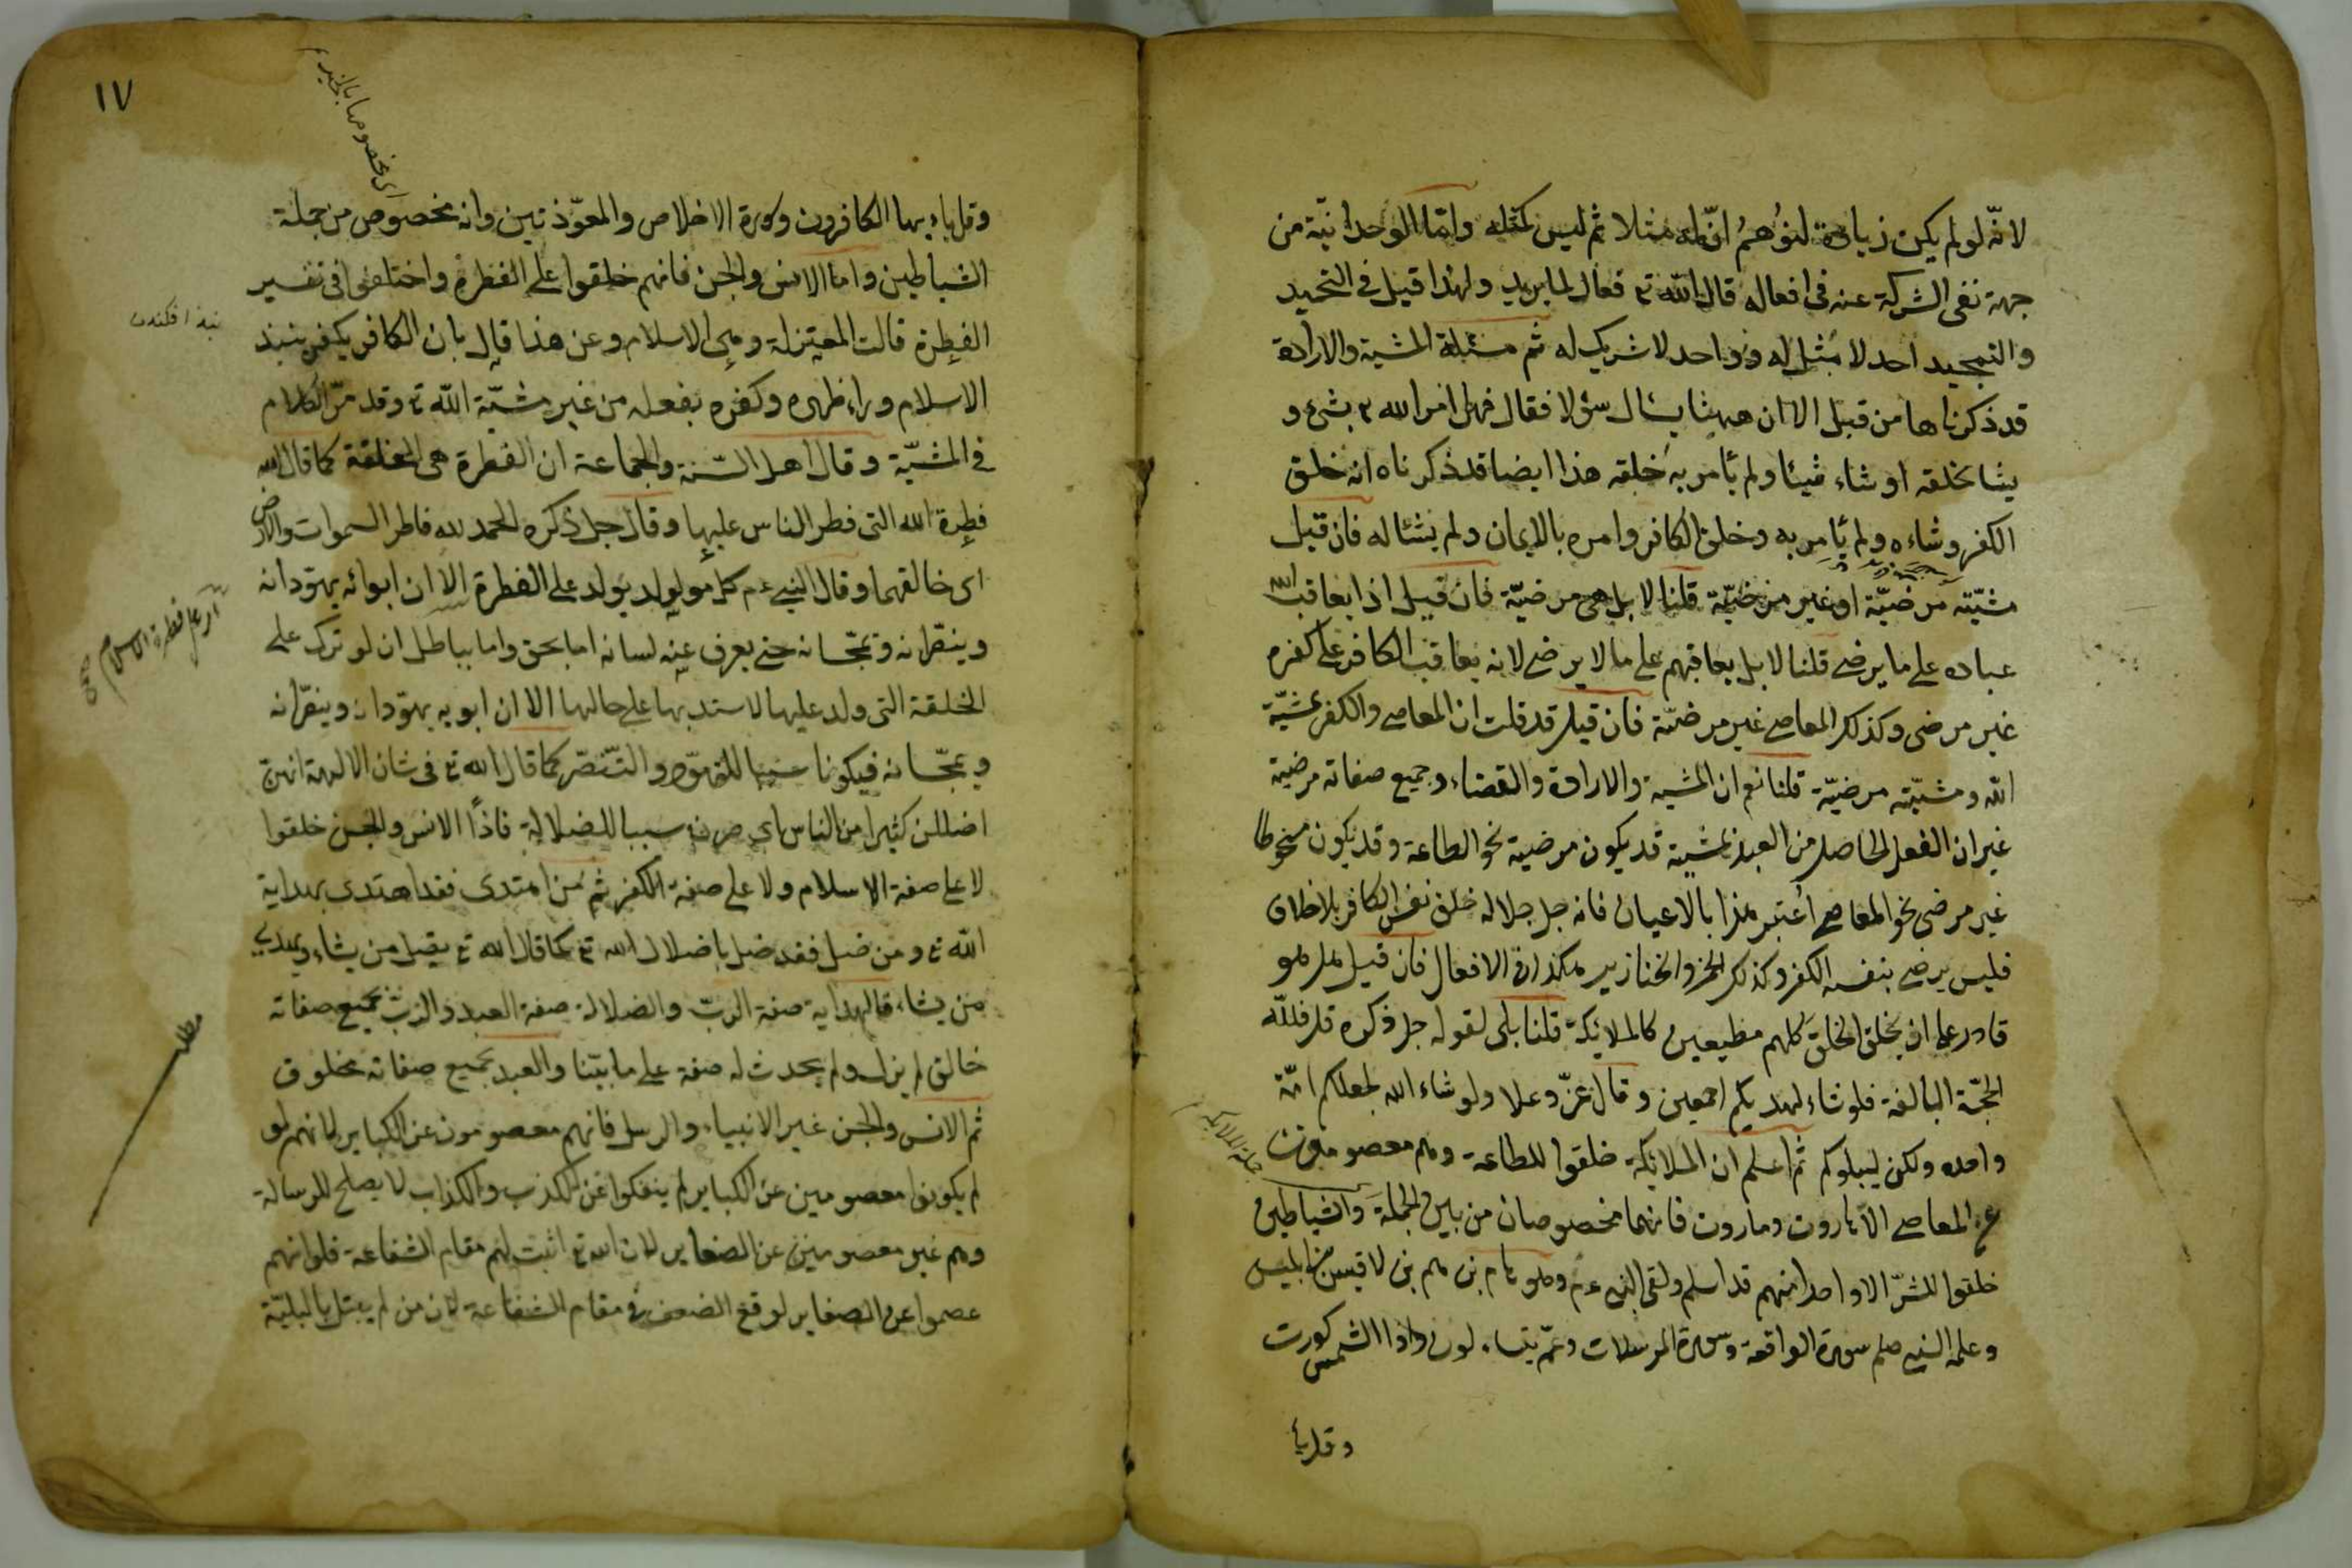 لانّه لو لم يكن زيادة لتوُهمُ انّ له مثلا ثم ليس كمثله وامّا الوحدانيّة من
جهة نفى الشركة عنه فى افعاله قال الله تع فعال لما يريد ولهذا قيل فى التحميد
والتمجيد احد لا مثل له وواحد لا شريك له ثم مسئلة المشية والارادة
قد ذكرناها من قبل الا ان ههنا يسال سؤلا فقال فهل امر الله تع بشئ و
يشا بخلقه او شاء شيئا ولم يأمر به خلقه هذا ايضا قد ذكرناه انه خلق
الكفر وشاءه ولم يأمر به وخلق الكافر وامره بالايمان ولم يشئا له فان قيل
مشيّته مرضيّة او غير مرضيّة قلنا لا بل هى مرضيّة فان قيل اذا يعاقب الله
عباده على ما يرضى قلنا لا بل يعاقبهم على ما لا يرضى لانه يعاقب الكافر على كفره
غير مرضى وكذلك المعاصى غير مرضيّة فان قيل قد قلت ان المعاصى والكفر بمشيّة
الله ومشيّته مرضيّة قلنا نعم ان المشية والارادة والقضاء وجميع صفاته مرضية
غير ان الفعل الحاصل من العبد بمشية قد يكون مرضية نحو الطاعة وقد يكون مسخوطا
غير مرضى نحو المعاصى اعتبر هذا بالاعيان فانه جل جلاله خلق نفس الكافر بلا خلاف
فليس يرضى بنفسه الكفر وكذلك الخمر والخنازير هكذا فى الافعال فان قيل هل هو
قادر على ان يخلق الخلق كلهم مطيعين كالملائكة قلنا بلى لقوله جل ذكره قل فلله
الحجّة البالغة فلو شاء لهديكم اجمعين وقال عزّ وعلا ولو شاء الله لجعلكم امّة
واحده ولكن ليبلوكم ثم اعلم ان الملائكة خلقوا للطاعة وهم معصومون
عن المعاصى الا هاروت وماروت فانهما مخصوصان من بين الجملة والشياطين
خلقوا للشرّ الا واحدا منهم قد اسلم ولقى النبى عم وهو هام بن هم بن لاقيس بن ابليس
وعلمه النبى صلم سورة الواقعة وسورة المرسلات وعمّ يتساءلون واذا الشمس كورت
وقل يا
١٧
وقل يا ايها الكافرون وسورة الاخلاص والمعوّذتين وانه مخصوص من جملة
الشياطين واما الانس والجن فانهم خلقوا على الفطرة واختلفوا فى تفسير
الفطرة قالت المعتزلة وهى الاسلام وعن هذا قال بان الكافر يكفر بنبذ
الاسلام وراء ظهره وكفره بفعله من غير مشيّة الله تع وقد مرّ الكلام
فى المشيّة وقال اهل السّنة والجماعة ان الفطرة هى الخلقة كما قال الله
فطرة الله التى فطر الناس عليها وقال جل ذكره الحمد لله فاطر السموات والارض
اى خالقهما وقال النبى عم كل مولود يولد على الفطرة الا ان ابوائه يهوّدانه
وينصّرانه ويمجّسانه حتى يعرف عنه لسانه اما بحق واما بباطل ان لو ترك على
الخلقة التى ولد عليها لاستد بها على حالها الا ان ابويه يهوّدانه وينصّرانه
ويمجّسانه فيكونا سببا للتهوّد والتنصّر كما قال الله تع فى شان الالهة انهن
اضللن كثيرا من الناس اى صرن سببا للضلالة فاذًا الانس والجن خلقوا
لا على صفة الاسلام ولا على صفة الكفر ثم من اهتدى فقد اهتدى بهداية
الله تع ومن ضل فقد ضل باضلال الله تع كما قال الله تع يضل من يشاء ويهدى
من يشاء فالهداية صفة الربّ والضلالة صفة العبد والربّ بجميع صفاته
خالق لم يزل ولم يحدث له صفة على ما بيّنا والعبد بجميع صفاته مخلوق
ثم الانس والجن غير الانبياء والرسل فانهم معصومون عن الكباير لانهم لو
لم يكونوا معصومين عن الكباير لم ينفكوا عن الكذب والكذاب لا يصلح للرسالة
وهم غير معصومين عن الصغاير لان الله تع اثبت لهم مقام الشفاعة فلو انهم
عصموا عن الصغاير لوقع الضعف فى مقام الشفاعة لان من لم يبتل بالبليّة
مطلب